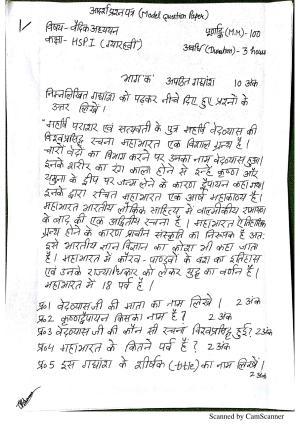 आदर्श प्रश्न पत्र (Model Question Paper)
विषय - वैदिक अध्ययन पूर्णांक (M.M) - 100
कक्षा - HSP.I (ग्यारहवीं) अवधि (Duration) - 3 hours
भाग 'क' अपठित गद्यांश 10 अंक
निम्नलिखित गद्यांश को पढ़कर नीचे दिए हुए प्रश्नों के
उत्तर लिखें।
"महर्षि पराशर एवं सत्यवती के पुत्र महर्षि वेदव्यास की
विश्वप्रसिद्ध रचना महाभारत एक विशाल ग्रन्थ है।
चारों वेदों का विभाग करने पर उनका नाम वेदव्यास हुआ।
इनके शरीर का रंग काला होने से इन्हें कृष्ण और
यमुना के द्वीप पर जन्म लेने के कारण द्वैपायन कहा गया।
इनके द्वारा रचित महाभारत एक आर्ष महाकाव्य है।
महाभारत भारतीय लौकिक साहित्य में वाल्मीकीय रामायण
के बाद की एक अद्वितीय रचना है। महाभारत ऐतिहासिक
ग्रन्थ होने के कारण प्राचीन संस्कृति का निरूपक है अतः
इसे भारतीय ज्ञान विज्ञान का कोश भी कहा जाता
है। महाभारत में कौरव-पाण्डवों के वंश का इतिहास
एवं उनके राज्याधिकार को लेकर युद्ध का वर्णन है।
महाभारत में 18 पर्व हैं।
प्र०1 वेदव्यास जी की माता का नाम लिखें। 2 अंक
प्र०2 कृष्णद्वैपायन किसका नाम है? 2 अंक
प्र०3 वेदव्यास जी की कौन सी रचना विश्वप्रसिद्ध हुई? 2 अंक
प्र०4 महाभारत के कितने पर्व हैं? 2 अंक
प्र०5 इस गद्यांश के शीर्षक (title) का नाम लिखें।
2 अंक
Scanned by CamScanner